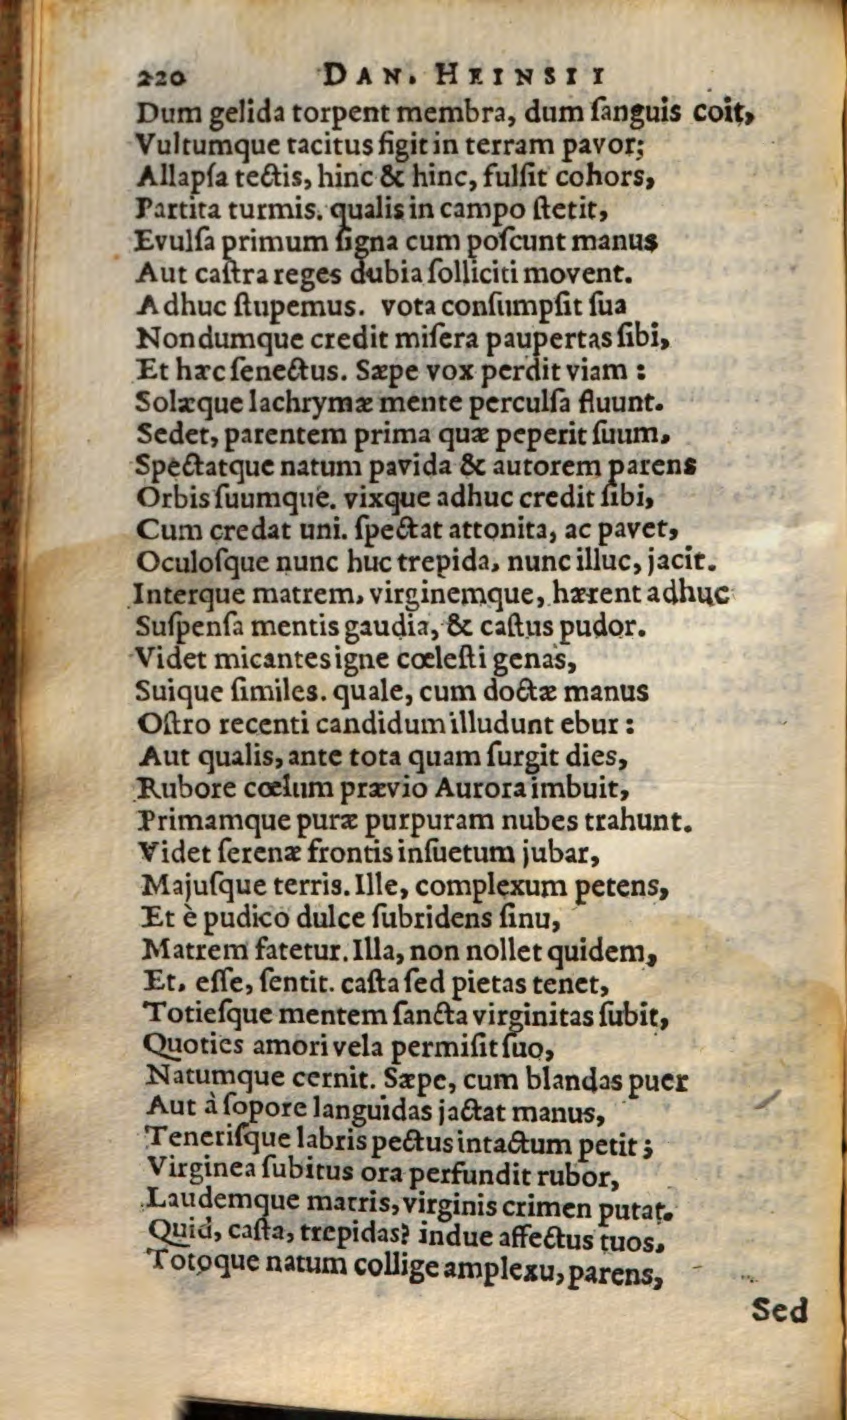 220 DAN. HEINSII
Dum gelida torpent membra, dum ſanguis coit,
Vultumque tacitus figit in terram pavor;
Allapſa tectis, hinc & hinc, fulſit cohors,
Partita turmis. qualis in campo ſtetit,
Evulſa primum ſigna cum poſcunt manus
Aut caſtra reges dubia ſolliciti movent.
Adhuc ſtupemus. vota conſumpſit ſua
Nondumque credit miſera paupertas ſibi,
Et hæc ſenectus. Sæpe vox perdit viam :
Solæque lachrymæ mente perculſa fluunt.
Sedet, parentem prima quæ peperit ſuum,
Spectatque natum pavida & autorem parens
Orbis ſuumque. vixque adhuc credit ſibi,
Cum credat uni. ſpectat attonita, ac pavet,
Oculoſque nunc huc trepida, nunc illuc, jacit.
Interque matrem, virginemque, hærent adhuc
Suſpenſa mentis gaudia, & caſtus pudor.
Videt micantes igne cœleſti genas,
Suique ſimiles. quale, cum doctæ manus
Oſtro recenti candidum illudunt ebur :
Aut qualis, ante tota quam ſurgit dies,
Rubore cœlum prævio Aurora imbuit,
Primamque puræ purpuram nubes trahunt.
Videt ſerenæ frontis inſuetum jubar,
Majuſque terris. Ille, complexum petens,
Et è pudico dulce ſubridens ſinu,
Matrem fatetur. Illa, non nollet quidem,
Et, eſſe, ſentit. caſta ſed pietas tenet,
Totieſque mentem ſancta virginitas ſubit,
Quoties amori vela permiſit ſuo,
Natumque cernit. Sæpe, cum blandas puer
Aut à ſopore languidas jactat manus,
Teneriſque labris pectus intactum petit ;
Virginea ſubitus ora perfundit rubor,
Laudemque matris, virginis crimen putat.
Quid, caſta, trepidas? indue affectus tuos,
Totoque natum collige amplexu, parens,
Sed